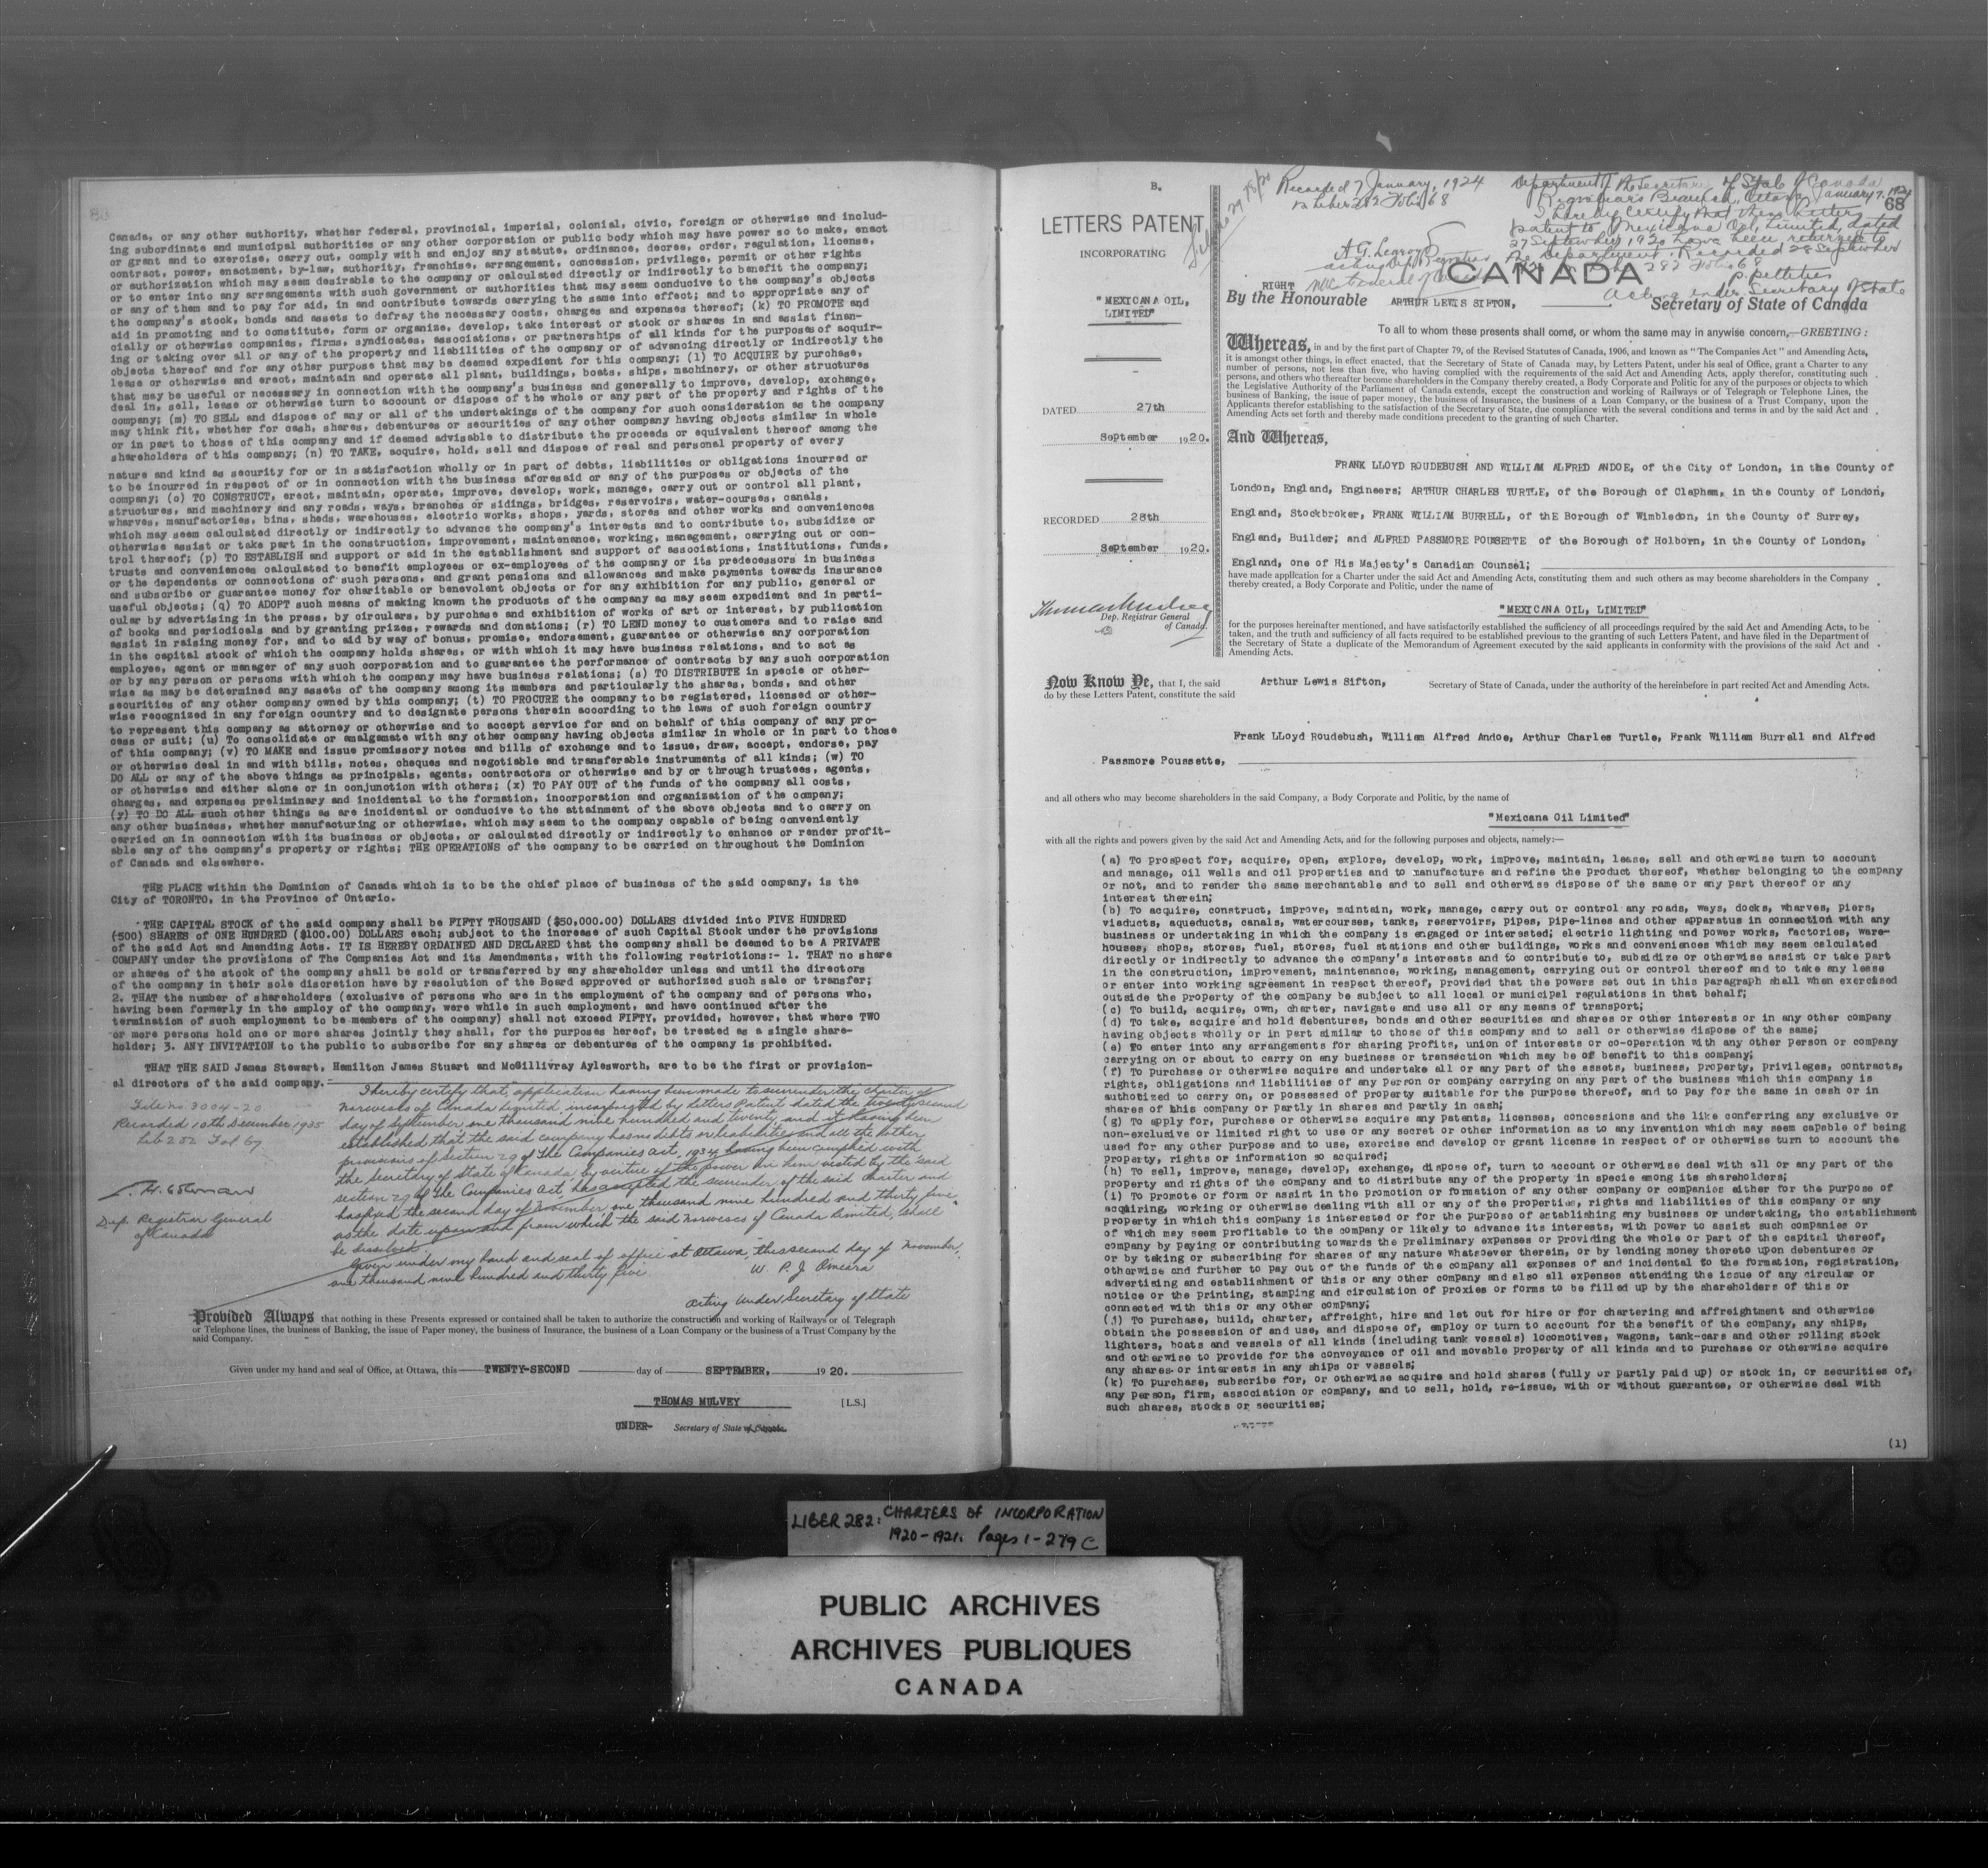 Canada, or any other authority, whether federal, provincial, imperial, colonial, civic, foreign or otherwise and includ-
ing subordinate and municipal authorities or any other corporation or public body which may have power so to make, enact
or grant and to exercise, carry out, comply with and enjoy any statute, ordinance, decree, order, regulation, license,
contract, power, enactment, by-law, authority, franchise, arrangement, concession, privilege, permit or other rights
or authorization which may seem desirable to the company or calculated directly or indirectly to benefit the company;
or to enter into any arrangements with such government or authorities that may seem conducive to the company's objects
or any of them and to pay for aid, in and contribute towards carrying the same into effect; and to appropriate any of
the company's stock, bonds and assets to defray the necessary costs, charges and expenses thereof; (k) TO PROMOTE and
aid in promoting and to constitute, form or organize, develop, take interest or stock or shares in and assist finan-
cially or otherwise companies, firms, syndicates, associations, or partnerships of all kinds for the purposes of acquir-
ing or taking over all or any of the property and liabilities of the company or of advancing directly or indirectly the
objects thereof and for any other purpose that may be deemed expedient for this company; (l) TO ACQUIRE by purchase,
lease or otherwise and erect, maintain and operate all plant, buildings, boats, ships, machinery, or other structures
that may be useful or necessary in connection with the company's business and generally to improve, develop, exchange,
deal in, sell, lease or otherwise turn to account or dispose of the whole or any part of the property and rights of the
company; (m) TO SELL and dispose of any or all of the undertakings of the company for such consideration as the company
may think fit, whether for cash, shares, debentures or securities of any other company having objects similar in whole
or in part to those of this company and if deemed advisable to distribute the proceeds or equivalent thereof among the
shareholders of this company; (n) TO TAKE, acquire, hold, sell and dispose of real and personal property of every
nature and kind as security for or in satisfaction wholly or in part of debts, liabilities or obligations incurred or
to be incurred in respect of or in connection with the business aforesaid or any of the purposes or objects of the
company; (o) TO CONSTRUCT, erect, maintain, operate, improve, develop, work, manage, carry out or control all plant,
structures, and machinery and any roads, ways, branches or sidings, bridges, reservoirs, water-courses, canals,
wharves, manufactories, bins, sheds, warehouses, electric works, shops, yards, stores and other works and conveniences
which may seem calculated directly or indirectly to advance the company's interests and to contribute to, subsidize or
otherwise assist or take part in the construction, improvement, maintenance, working, management, carrying out or con-
trol thereof; (p) TO ESTABLISH and support or aid in the establishment and support of associations, institutions, funds,
trusts and conveniences calculated to benefit employees or ex-employees of the company or its predecessors in business
or the dependents or connections of such persons, and grant pensions and allowances and make payments towards insurance
and subscribe or guarantee money for charitable or benevolent objects or for any exhibition for any public, general or
useful objects; (q) TO ADOPT such means of making known the products of the company as may seem expedient and in parti-
cular by advertising in the press, by circulars, by purchase and exhibition of works of art or interest, by publication
of books and periodicals and by granting prizes, rewards and donations; (r) TO LEND money to customers and to raise and
assist in raising money for, and to aid by way of bonus, promise, endorsement, guarantee or otherwise any corporation
in the capital stock of which the company holds shares, or with which it may have business relations, and to act as
employee, agent or manager of any such corporation and to guarantee the performance of contracts by any such corporation
or by any person or persons with which the company may have business relations; (s) TO DISTRIBUTE in specie or other-
wise as may be determined any assets of the company among its members and particularly the shares, bonds, and other
securities of any other company owned by this company; (t) TO PROCURE the company to be registered, licensed or other-
wise recognized in any foreign country and to designate persons therein according to the laws of such foreign country
to represent this company as attorney or otherwise and to accept service for and on behalf of this company of any pro-
cess or suit; (u) To consolidate or amalgamate with any other company having objects similar in whole or in part to those
of this company; (v) TO MAKE and issue promissory notes and bills of exchange and to issue, draw, accept, endorse, pay
or otherwise deal in and with bills, notes, cheques and negotiable and transferable instruments of all kinds; (w) TO
DO ALL or any of the above things as principals, agents, contractors or otherwise and by or through trustees, agents,
or otherwise and either alone or in conjunction with others; (x) TO PAY OUT of the funds of the company all costs,
charges, and expenses preliminary and incidental to the formation, incorporation and organization of the company;
(y) TO DO ALL such other things as are incidental or conducive to the attainment of the above objects and to carry on
any other business, whether manufacturing or otherwise, which may seem to the company capable of being conveniently
carried on in connection with its business or objects, or calculated directly or indirectly to enhance or render profit-
able any of the company's property or rights; THE OPERATIONS of the company to be carried on throughout the Dominion
of Canada and elsewhere.
THE PLACE within the Dominion of Canada which is to be the chief place of business of the said company, is the
City of TORONTO, in the Province of Ontario.
THE CAPITAL STOCK of the said company shall be FIFTY THOUSAND ($50,000.00) DOLLARS divided into FIVE HUNDRED
(500) SHARES of ONE HUNDRED ($100.00) DOLLARS each; subject to the increase of such Capital Stock under the provisions
of the said Act and Amending Acts. IT IS HEREBY ORDAINED AND DECLARED that the company shall be deemed to be A PRIVATE
COMPANY under the provisions of The Companies Act and its Amendments, with the following restrictions:- 1. THAT no share
or shares of the stock of the company shall be sold or transferred by any shareholder unless and until the directors
of the company in their sole discretion have by resolution of the Board approved or authorized such sale or transfer;
2. THAT the number of shareholders (exclusive of persons who are in the employment of the company and of persons who,
having been formerly in the employ of the company, were while in such employment, and have continued after the
termination of such employment to be members of the company) shall not exceed FIFTY, provided, however, that where TWO
or more persons hold one or more shares jointly they shall, for the purposes hereof, be treated as a single share-
holder; 3. ANY INVITATION to the public to subscribe for any shares or debentures of the company is prohibited.
THAT THE SAID James Stewart, Hamilton James Stuart and McGillivray Aylesworth, are to be the first or provision-
al directors of the said company.
I hereby certify that, application having been made to surrender the charter of
Norwesco of Canada Limited, incorporated by Letters Patent dated the twenty second
day of September one thousand nine hundred and twenty, and it having been
established that the said company has no debts or liabilities and all the other
provisions of Section 29 of The Companies Act, 1934 having been complied with
the Secretary of State of Canada, by virtue of the power in him vested by the said
section 29 of The Companies Act, has accepted the surrender of the said charter and
has fixed the second day of November one thousand nine hundred and thirty five
as the date upon and from which the said Norwesco of Canada Limited, shall
be dissolved.
Given under my hand and seal of office at Ottawa, this second day of November,
one thousand nine hundred and thirty five
W. P. J. Omeara
Acting Under Secretary of State
File no. 3004-20
Recorded 10th December 1935
Lib 282 Fol 67
Dep. Registrar General
of Canada
Provided Always that nothing in these Presents expressed or contained shall be taken to authorize the construction and working of Railways or of Telegraph
or Telephone lines, the business of Banking, the issue of Paper money, the business of Insurance, the business of a Loan Company or the business of a Trust Company by the
said Company.
Given under my hand and seal of Office, at Ottawa, this TWENTY-SECOND day of SEPTEMBER, 19 20.
THOMAS MULVEY [L.S.]
UNDER- Secretary of State of Canada.
B.
LETTERS PATENT
INCORPORATING
"MEXICANA OIL,
LIMITED"
DATED 27th
September 1920.
RECORDED 28th
September 1920.
Thomas Mulvey
Dep. Registrar General
of Canada.
Recorded 7 January, 1924
Liber 282 Folio 68
Department of the Secretary of State of Canada
Registrar's Branch, Ottawa, January 7, 1924
68
I hereby certify that these Letters
patent to Mexicana Oil, Limited, dated
27 September 1920 have been returned to
the Department. Recorded 28 September
282 Folio 68
P. Pelletier
Acting Under Secretary of State
A. G. Learoyd
Acting Dep. Registrar
General of Canada
CANADA
By the RIGHT Honourable ARTHUR LEWIS SIFTON, Secretary of State of Canada
To all to whom these presents shall come, or whom the same may in anywise concern,—GREETING:
Whereas, in and by the first part of Chapter 79, of the Revised Statutes of Canada, 1906, and known as "The Companies Act" and Amending Acts,
it is amongst other things, in effect enacted, that the Secretary of State may, by Letters Patent, under his seal of Office, grant a Charter to any
number of persons, not less than five, who having complied with the requirements of the said Act and Amending Acts, apply therefor, constituting such
persons, and others who thereafter become shareholders in the Company thereby created, a Body Corporate and Politic for any of the purposes or objects to which
the Legislative Authority of the Parliament of Canada extends, except the construction and working of Railways or of Telegraph or Telephone Lines, the
business of Banking, the issue of paper money, the business of Insurance, the business of a Loan Company, or the business of a Trust Company, upon the
Applicants therefor establishing to the satisfaction of the Secretary of State, due compliance with the several conditions and terms in and by the said Act and
Amending Acts set forth and thereby made conditions precedent to the granting of such Charter.
And Whereas,
FRANK LLOYD ROUDEBUSH AND WILLIAM ALFRED ANDOE, of the City of London, in the County of
London, England, Engineers; ARTHUR CHARLES TURTLE, of the Borough of Clapham, in the County of London,
England, Stockbroker, FRANK WILLIAM BURRELL, of thE Borough of Wimbledon, in the County of Surrey,
England, Builder; and ALFRED PASSMORE POUSETTE of the Borough of Holborn, in the County of London,
England, one of His Majesty's Canadian Counsel;
have made application for a Charter under the said Act and Amending Acts, constituting them and such others as may become shareholders in the Company
thereby created, a Body Corporate and Politic, under the name of
"MEXICANA OIL, LIMITED"
for the purposes hereinafter mentioned, and have satisfactorily established the sufficiency of all proceedings required by the said Act and Amending Acts, to be
taken, and the truth and sufficiency of all facts required to be established previous to the granting of such Letters Patent, and have filed in the Department of
the Secretary of State a duplicate of the Memorandum of Agreement executed by the said applicants in conformity with the provisions of the said Act and
Amending Acts.
Now Know Ye, that I, the said Arthur Lewis Sifton, Secretary of State of Canada, under the authority of the hereinbefore in part recited Act and Amending Acts.
do by these Letters Patent, constitute the said
Frank LLoyd Roudebush, William Alfred Andoe, Arthur Charles Turtle, Frank William Burrell and Alfred
Passmore Poussette,
and all others who may become shareholders in the said Company, a Body Corporate and Politic, by the name of
"Mexicana Oil Limited"
with all the rights and powers given by the said Act and Amending Acts, and for the following purposes and objects, namely:—
(a) To prospect for, acquire, open, explore, develop, work, improve, maintain, lease, sell and otherwise turn to account
and manage, oil wells and oil properties and to manufacture and refine the product thereof, whether belonging to the company
or not, and to render the same merchantable and to sell and otherwise dispose of the same or any part thereof or any
interest therein;
(b) To acquire, construct, improve, maintain, work, manage, carry out or control any roads, ways, docks, wharves, piers,
viaducts, aqueducts, canals, watercourses, tanks, reservoirs, pipes, pipe-lines and other apparatus in connection with any
business or undertaking in which the company is engaged or interested; electric lighting and power works, factories, ware-
houses, shops, stores, fuel, stores, fuel stations and other buildings, works and conveniences which may seem calculated
directly or indirectly to advance the company's interests and to contribute to, subsidize or otherwise assist or take part
in the construction, improvement, maintenance, working, management, carrying out or control thereof and to take any lease
or enter into working agreement in respect thereof, provided that the powers set out in this paragraph shall when exercised
outside the property of the company be subject to all local or municipal regulations in that behalf;
(c) To build, acquire, own, charter, navigate and use all or any means of transport;
(d) To take, acquire and hold debentures, bonds and other securities and shares or other interests or in any other company
having objects wholly or in part similar to those of this company and to sell or otherwise dispose of the same;
(e) To enter into any arrangements for sharing profits, union of interests or co-operation with any other person or company
carrying on or about to carry on any business or transaction which may be of benefit to this company;
(f) To purchase or otherwise acquire and undertake all or any part of the assets, business, property, privileges, contracts,
rights, obligations and liabilities of any person or company carrying on any part of the business which this company is
authorized to carry on, or possessed of property suitable for the purpose thereof, and to pay for the same in cash or in
shares of this company or partly in shares and partly in cash;
(g) To apply for, purchase or otherwise acquire any patents, licenses, concessions and the like conferring any exclusive or
non-exclusive or limited right to use or any secret or other information as to any invention which may seem capable of being
used for any other purpose and to use, exercise and develop or grant license in respect of or otherwise turn to account the
property, rights or information so acquired;
(h) To sell, improve, manage, develop, exchange, dispose of, turn to account or otherwise deal with all or any part of the
property and rights of the company and to distribute any of the property in specie among its shareholders;
(i) To promote or form or assist in the promotion or formation of any other company or companies either for the purpose of
acquiring, working or otherwise dealing with all or any of the properties, rights and liabilities of this company or any
property in which this company is interested or for the purpose of establishing any business or undertaking, the establishment
of which may seem profitable to the company or likely to advance its interests, with power to assist such companies or
company by paying or contributing towards the preliminary expenses or providing the whole or part of the capital thereof,
or by taking or subscribing for shares of any nature whatsoever therein, or by lending money thereto upon debentures or
otherwise and further to pay out of the funds of the company all expenses of and incidental to the formation, registration,
advertising and establishment of this or any other company and also all expenses attending the issue of any circular or
notice or the printing, stamping and circulation of proxies or forms to be filled up by the shareholders of this or
connected with this or any other company;
(j) To purchase, build, charter, affreight, hire and let out for hire or for chartering and affreightment and otherwise
obtain the possession of and use, and dispose of, employ or turn to account for the benefit of the company, any ships,
lighters, boats and vessels of all kinds (including tank vessels) locomotives, wagons, tank-cars and other rolling stock
and otherwise to provide for the conveyance of oil and movable property of all kinds and to purchase or otherwise acquire
any shares or interests in any ships or vessels;
(k) To purchase, subscribe for, or otherwise acquire and hold shares (fully or partly paid up) or stock in, or securities of,
any person, firm, association or company, and to sell, hold, re-issue, with or without guarantee, or otherwise deal with
such shares, stocks or securities;
(1)
LIBER 282: CHARTERS OF INCORPORATION
1920-1921. Pages 1-279C
PUBLIC ARCHIVES
ARCHIVES PUBLIQUES
CANADA